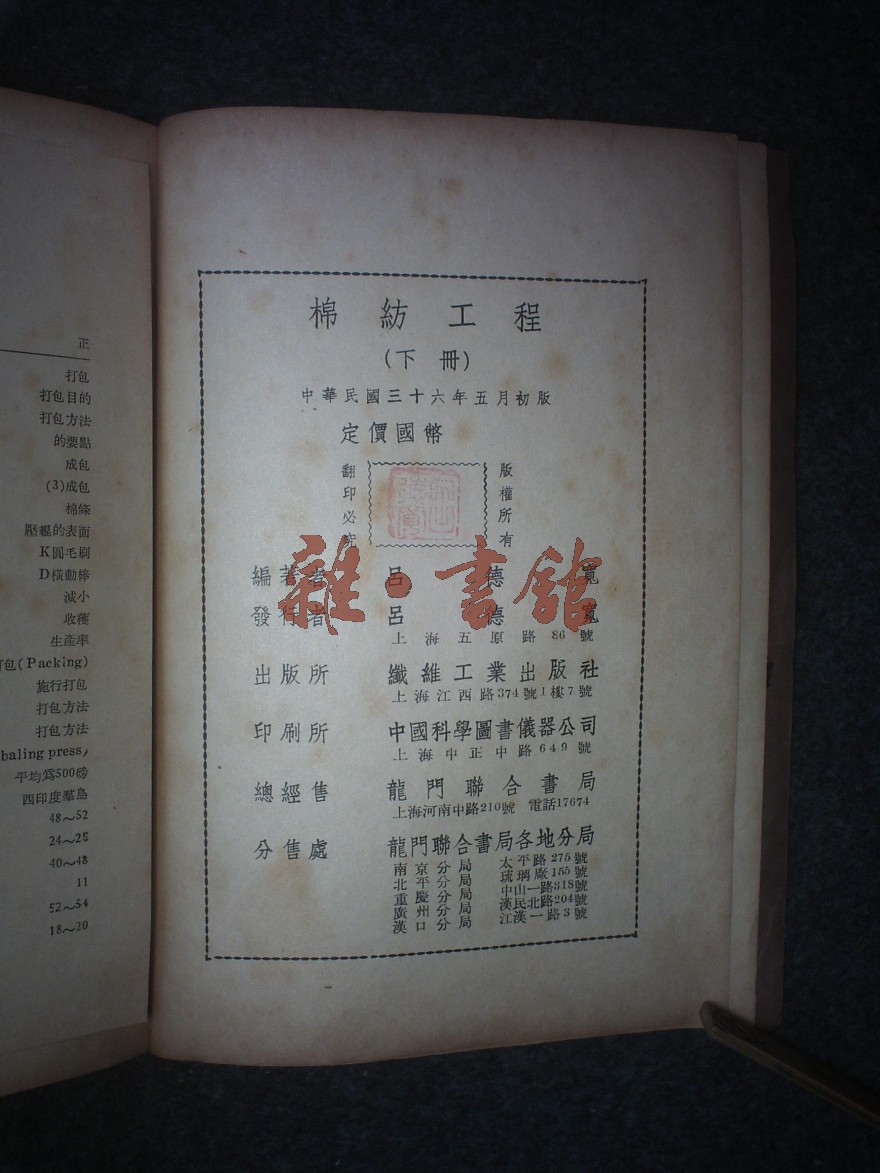 正
打包
打包目的
打包方法
的要點
成包
(3)成包
棉條
壓輥的表面
K圓毛刷
D橫動桿
減小
收穫
生產率
打包(Packing)
施行打包
打包方法
打包方法
baling press)
平均爲500磅
西印度羣島
48～52
24～25
40～48
11
52～54
18～20
棉紡工程
(下冊)
中華民國三十六年五月初版
定價國幣
版權所有
翻印必究
編著者 呂德寬
發行者 呂德寬
上海五原路86號
出版所 纖維工業出版社
上海江西路374號1樓7號
印刷所 中國科學圖書儀器公司
上海中正中路649號
總經售 龍門聯合書局
上海河南中路210號 電話17674
分售處 龍門聯合書局各地分局
南京分局 太平路275號
北平分局 琉璃廠155號
重慶分局 中山一路318號
廣州分局 漢民北路204號
漢口分局 江漢一路3號
雜·書館